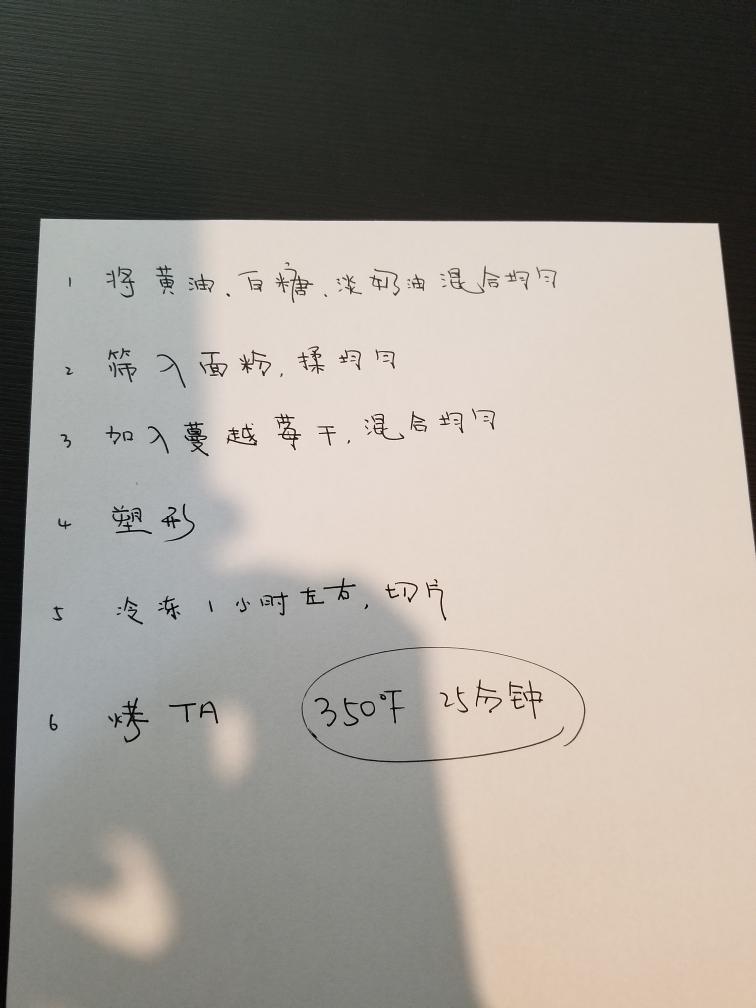 1 将黄油、白糖、淡奶油混合均匀
2 筛入面粉，揉均匀
3 加入蔓越莓干，混合均匀
4 塑形
5 冷冻1小时左右，切片
6 烤TA 350°F 25分钟